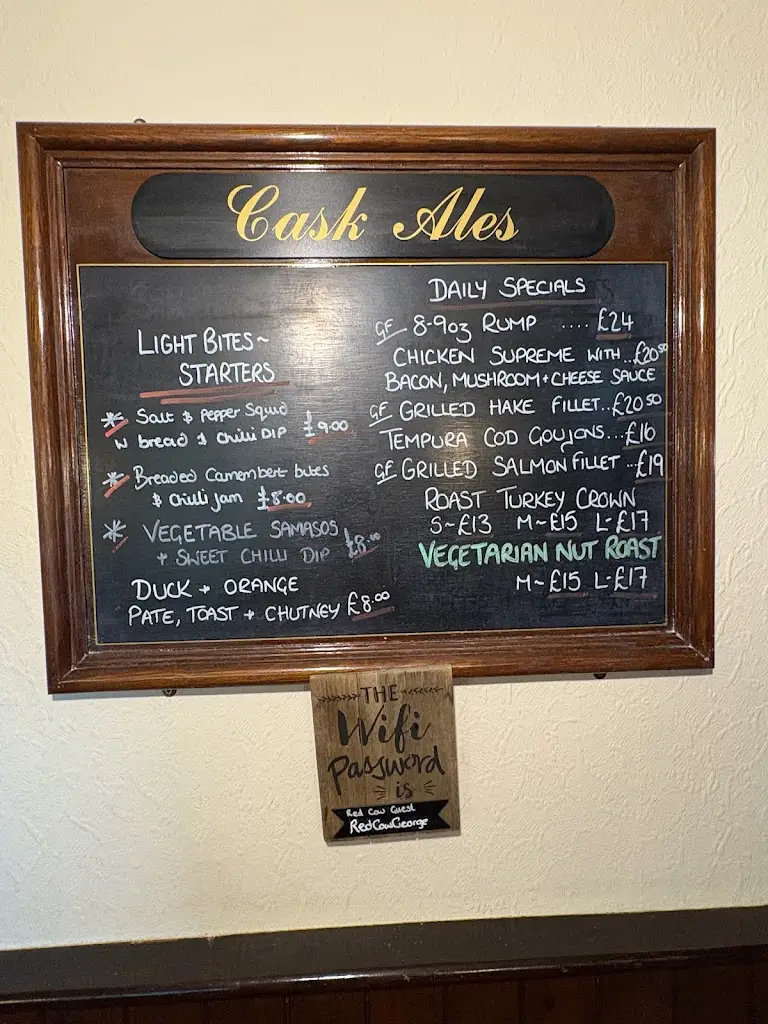 Cask Ales
LIGHT BITES~
STARTERS
* Salt & Pepper Squid
W bread & Chilli DIP £9.00
* Breaded Camembert bites
& Chilli jam £8.00
* VEGETABLE SAMASOS
+ SWEET CHILLI DIP £8.00
DUCK + ORANGE
PATE, TOAST + CHUTNEY £8.00
DAILY SPECIALS
GF 8-9oz RUMP .... £24
CHICKEN SUPREME WITH..£20.50
BACON, MUSHROOM + CHEESE SAUCE
GF GRILLED HAKE FILLET...£20.50
TEMPURA COD GOUJONS...£16
GF GRILLED SALMON FILLET ..£19
ROAST TURKEY CROWN
S~£13 M~£15 L-£17
VEGETARIAN NUT ROAST
M~£15 L-£17
THE
Wifi
Password
is
Red Cow Guest
RedCowGeorge